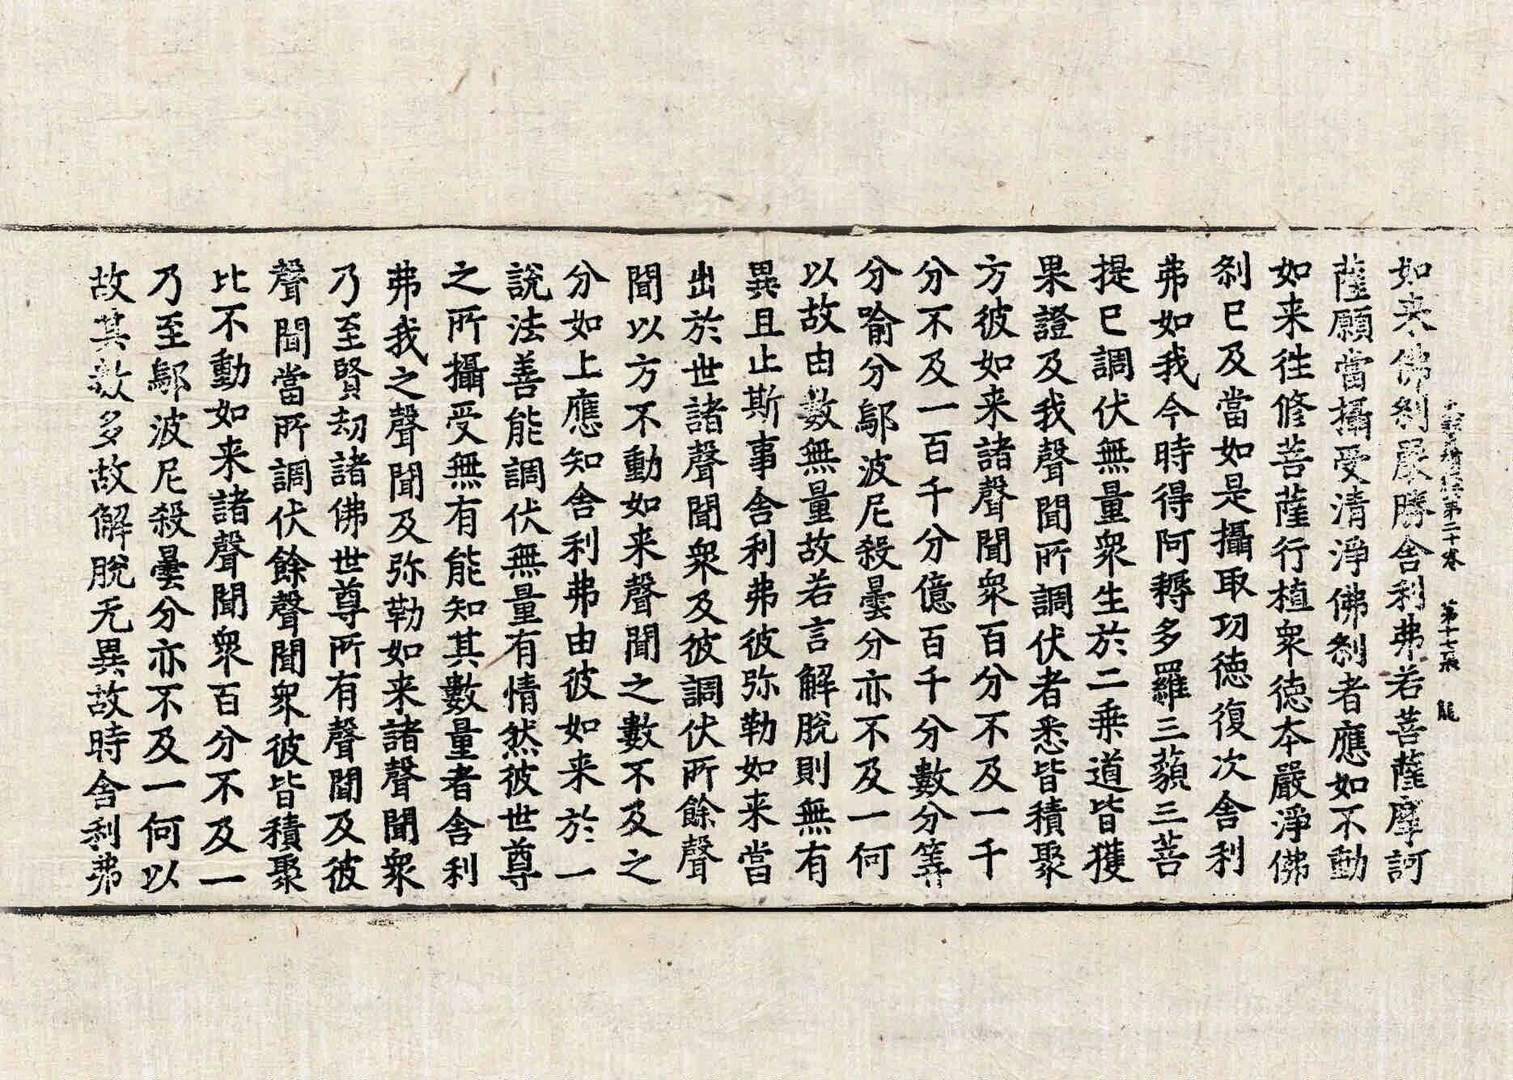 第二十卷 第十七張 龍
如来佛刹嚴勝舍利弗若菩薩摩訶
薩願當攝受清淨佛刹者應如不動
如来往修菩薩行植衆德本嚴淨佛
刹已及當如是攝取功德復次舍利
弗如我今時得阿耨多羅三藐三菩
提已調伏無量衆生於二乘道皆獲
果證及我聲聞所調伏者悉皆積聚
方彼如来諸聲聞衆百分不及一千
分不及一百千分億百千分數分筭
分喻分鄔波尼殺曇分亦不及一何
以故由數無量故若言解脫則無有
異且止斯事舍利弗彼弥勒如来當
出於世諸聲聞衆及彼調伏所餘聲
聞以方不動如来聲聞之數不及之
分如上應知舍利弗由彼如来於一
說法善能調伏無量有情然彼世尊
之所攝受無有能知其數量者舍利
弗我之聲聞及弥勒如来諸聲聞衆
乃至賢劫諸佛世尊所有聲聞及彼
聲聞當所調伏餘聲聞衆彼皆積聚
比不動如来諸聲聞衆百分不及一
乃至鄔波尼殺曇分亦不及一何以
故其數多故解脫无異故時舍利弗